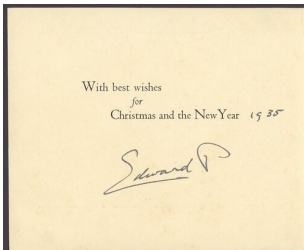 With best wishes
for
Christmas and the New Year 1935
Edward P